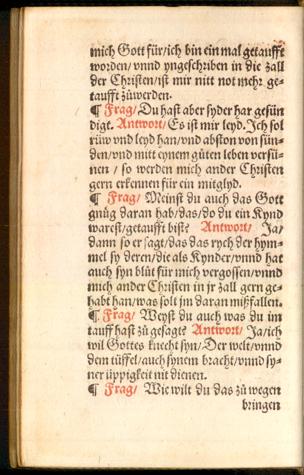 mich Gott für/ich bin ein mal getaufft
worden/vnnd yngeschriben in die zall
der Christen/ist mir nitt not mehr ge-
taufft zůwerden.
¶ Frag/Du hast aber syder har gesün
digt. Antwort/Es ist mir leyd. Ich sol
rüw vnd leyd han/vnd abston von sün-
den/vnd mitt eynem gůten leben versü-
nen / so werden mich ander Christen
gern erkennen für ein mitglyd.
¶ Frag/ Meinst du auch das Gott
gnůg daran hab/das/do du ein Kynd
warest/getaufft bist? Antwort/ Ja/
dann so er sagt/das das rych der hym-
mel sy deren/die als Kynder/vnnd hat
auch syn blůt für mich vergossen/vnnd
mich ander Christen in jr zall gern ge-
habt han/was solt jm daran mißfallen.
¶ Frag/ Weyst du auch was du im
tauff hast zů gesagt? Antwort/ Ja/ich
wil Gottes knecht syn/Der welt/vnnd
dem tüffel/auch synem bracht/vnnd sy-
ner üppigkeit nit dienen.
¶ Frag/ Wie wilt du das zů wegen
bringen